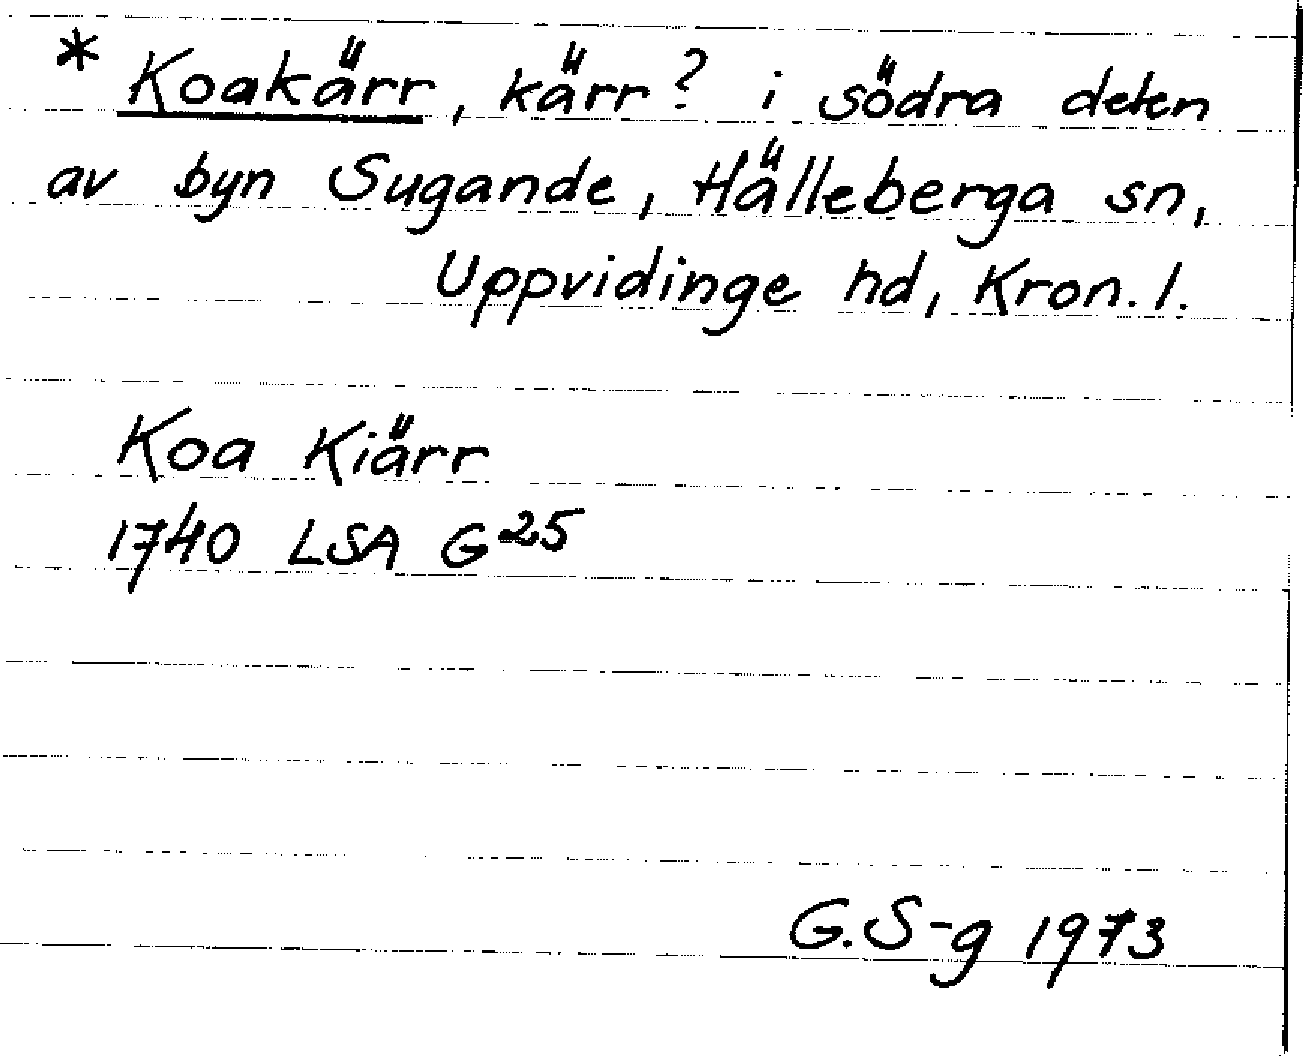 * Koakärr, kärr? i södra delen
av byn Sugande, Hälleberga sn,
Uppvidinge hd, Kron. l.
Koa Kiärr
1740 LSA G 25
G. S-g 1973